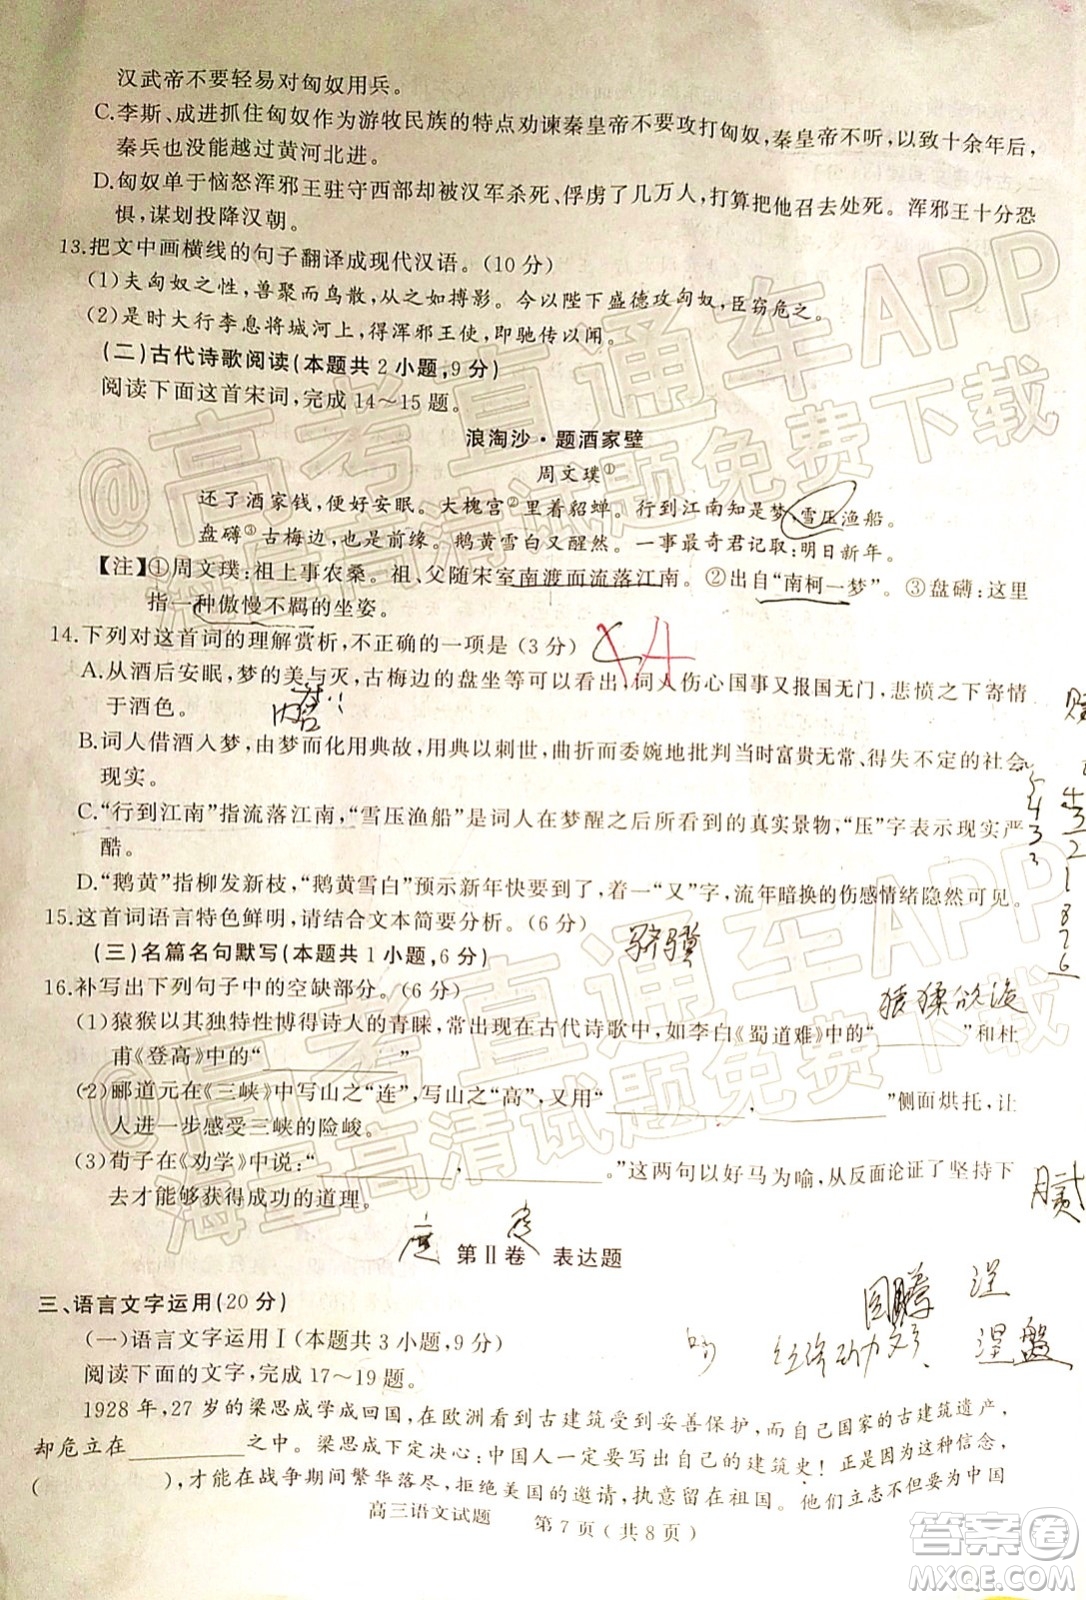 汉武帝不要轻易对匈奴用兵。
C.李斯、成进抓住匈奴作为游牧民族的特点劝谏秦皇帝不要攻打匈奴,秦皇帝不听,以致十余年后,
秦兵也没能越过黄河北进。
D.匈奴单于恼怒浑邪王驻守西部却被汉军杀死、俘虏了几万人,打算把他召去处死。浑邪王十分恐
惧,谋划投降汉朝。
13.把文中画横线的句子翻译成现代汉语。(10分)
(1)夫匈奴之性,兽聚而鸟散,从之如搏影。今以陛下盛德攻匈奴,臣窃危之。
(2)是时大行李息将城河上,得浑邪王使,即驰传以闻。
(二)古代诗歌阅读(本题共2小题,9分)
阅读下面这首宋词,完成14～15题。
浪淘沙·题酒家壁
周文璞①
还了酒家钱,便好安眠。大槐宫②里着貂蝉。行到江南知是梦,雪压渔船。
盘礴③古梅边,也是前缘。鹅黄雪白又醒然。一事最奇君记取:明日新年。
【注】①周文璞:祖上事农桑。祖、父随宋室南渡而流落江南。②出自“南柯一梦”。③盘礴:这里
指一种傲慢不羁的坐姿。
14.下列对这首词的理解赏析,不正确的一项是(3分)
A.从酒后安眠,梦的美与灭,古梅边的盘坐等可以看出,词人伤心国事又报国无门,悲愤之下寄情
于酒色。
内容
B.词人借酒入梦,由梦而化用典故,用典以刺世,曲折而委婉地批判当时富贵无常、得失不定的社会
现实。
C.“行到江南”指流落江南,“雪压渔船”是词人在梦醒之后所看到的真实景物,“压”字表示现实严
酷。
D.“鹅黄”指柳发新枝,“鹅黄雪白”预示新年很快要到了。着一“又”字,流年暗换的伤感情绪隐然可见。
15.这首词语言特色鲜明,请结合文本简要分析。(6分)
(三)名篇名句默写(本题共1小题,6分)
骐骥
16.补写出下列句子中的空缺部分。(6分)
猿猱欲渡
(1)猿猴以其独特性博得诗人的青睐,常出现在古代诗歌中,如李白《蜀道难》中的“________”和杜
甫《登高》中的“________”
(2)郦道元在《三峡》中写山之“连”,写山之“高”,又用“________,________”侧面烘托,让
人进一步感受三峡的险峻。
(3)荀子在《劝学》中说:“________,________。”这两句以好马为喻,从反面论证了坚持下
去才能够获得成功的道理。
第Ⅱ卷 表达题
三、语言文字运用(20分)
图腾 涅
涅盘
(一)语言文字运用Ⅰ(本题共3小题,9分)
阅读下面的文字,完成17～19题。
1928年,27岁的梁思成学成回国,在欧洲看到古建筑受到妥善保护,而自己国家的古建筑遗产,
却危立在________之中。梁思成下定决心:中国人一定要写出自己的建筑史!正是因为这种信念,
(________),才能在战争期间繁华落尽,拒绝美国的邀请,执意留在中国。他们立志不为中国
高三语文试题 第7页(共8页)
@高考直通车APP
海量高清试题免费下载
@高考直通车APP
海量高清试题免费下载
答案圈
MXQE.COM